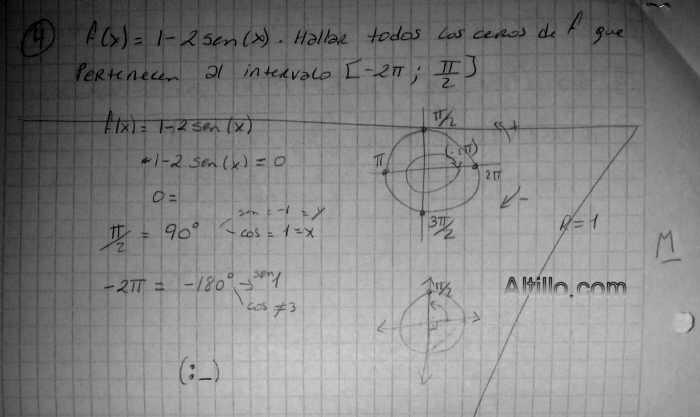 4 f(x) = 1 - 2 sen(x). Hallar todos los ceros de f que
Pertenecen al intervalo [-2π ; π/2]
f(x) = 1 - 2 sen(x)
1 - 2 sen(x) = 0
0 =
π/2 = 90° sen = -1 = y
cos = 1 = x
-2π = -180° → sen 1
cos ≠ 3
(:_)
π/2
+
π
(-2π)
2π
3π/2
-
R = 1
M
Altillo.com
π/2